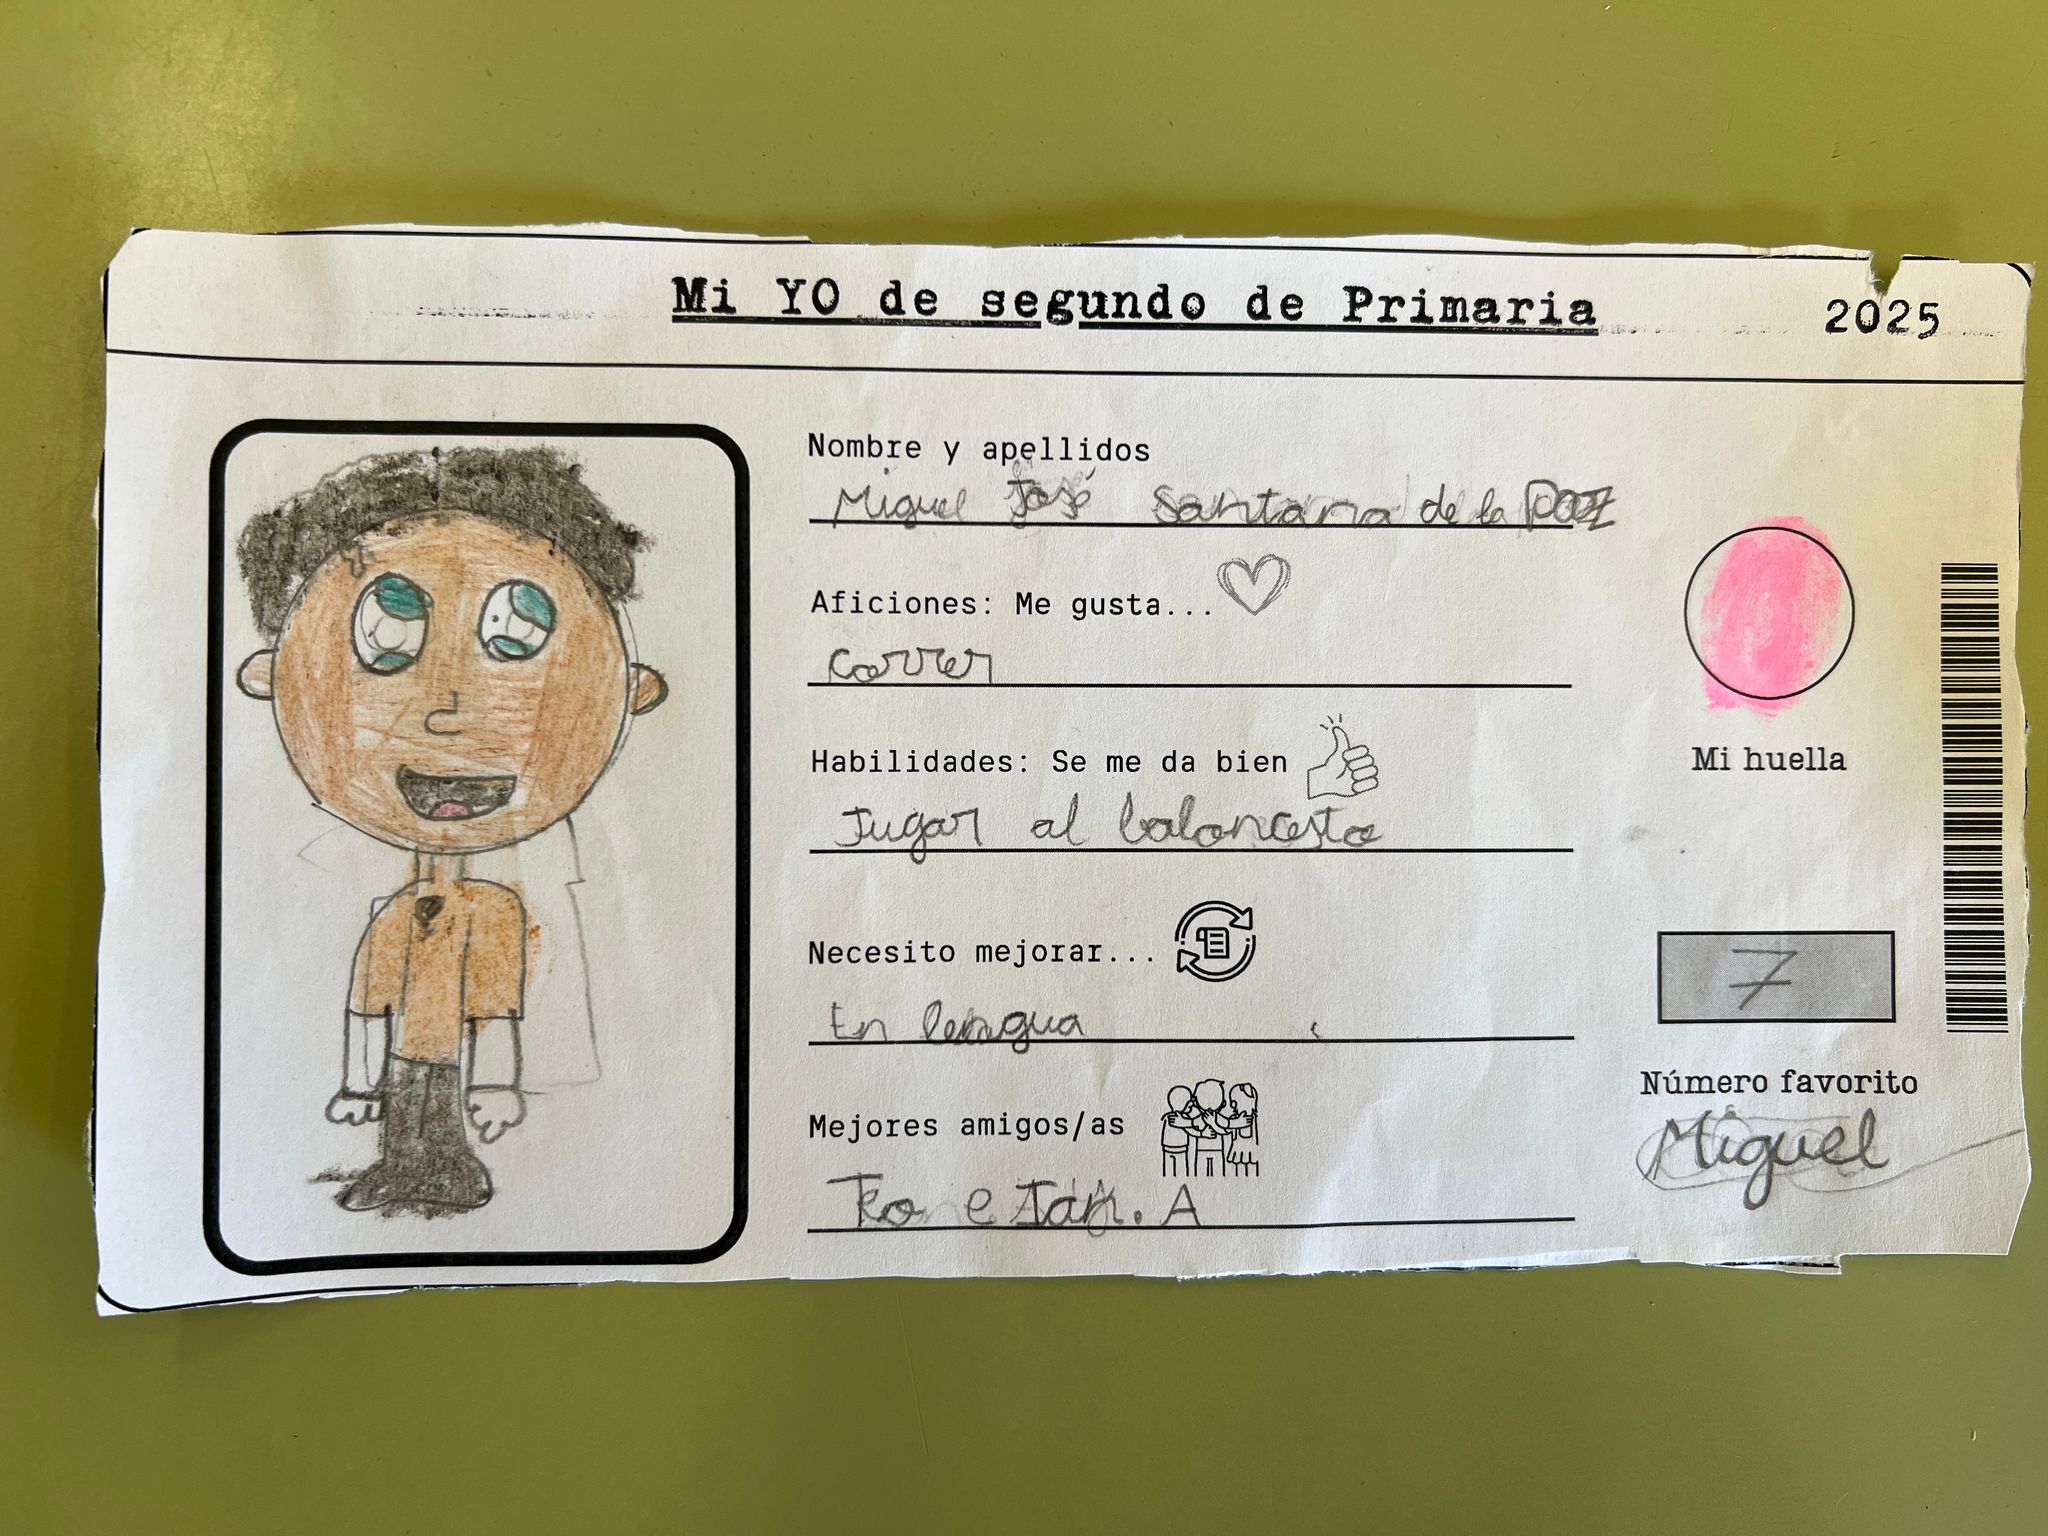 Mi YO de segundo de Primaria 2025
Nombre y apellidos
Miguel José Santana de la Paz
Aficiones: Me gusta...
correr
Habilidades: Se me da bien
Jugar al baloncesto
Necesito mejorar...
En lengua
Mejores amigos/as
Teo e Ian. A
Mi huella
7
Número favorito
Miguel